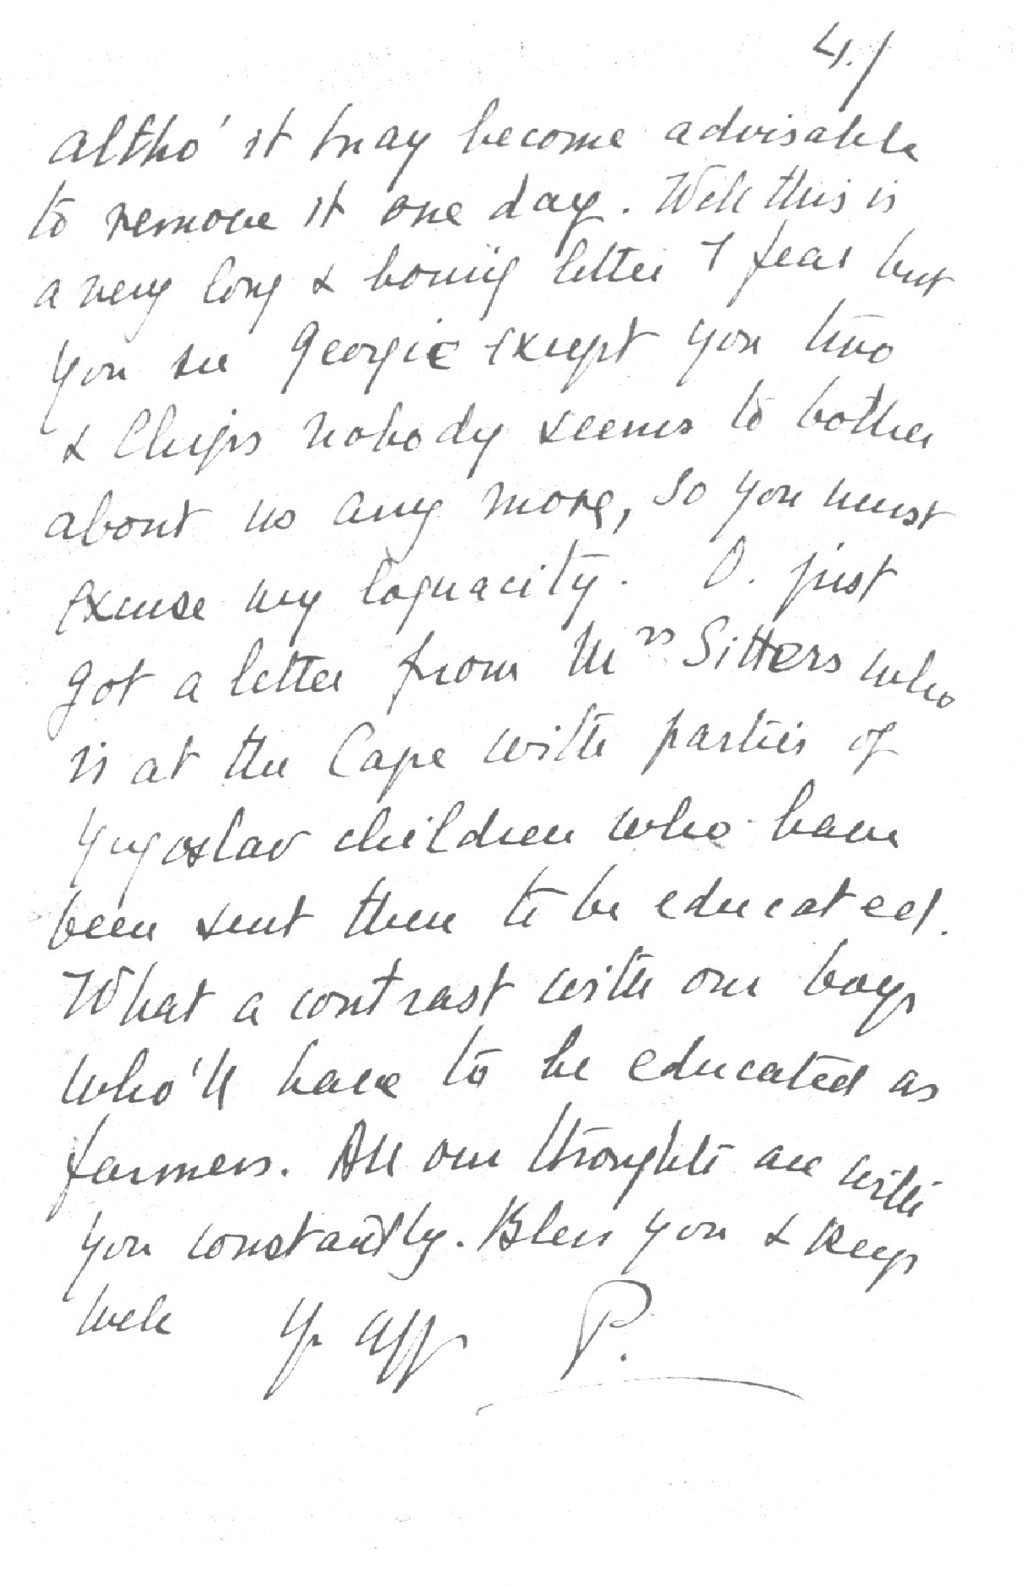 4./
altho' it may become advisable
to remove it one day. Well this is
a very long & boring letter I fear but
you see Georgie except you two
& Chips nobody seems to bother
about us any more, so you must
excuse my loquacity. O. just
got a letter from Mrs Sitters who
is at the Cape with parties of
Yugoslav children who have
been sent there to be educated.
What a contrast with our boys
who'll have to be educated as
farmers. All our thoughts are with
you constantly. Bless you & keep
well Yr aff P.